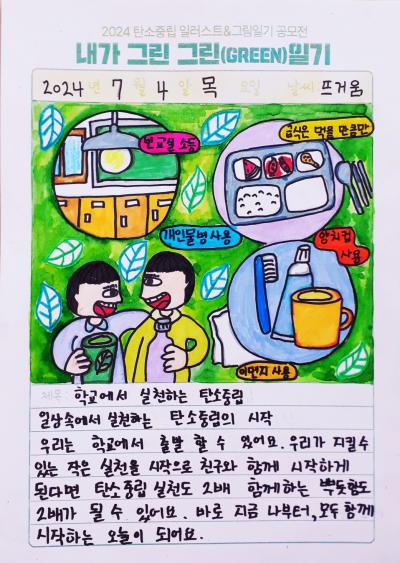 2024 탄소중립 일러스트&그림일기 공모전
내가 그린 그린(GREEN)일기
2024년 7월 4일 목요일 날씨 뜨거움
빈교실 소등
급식은 먹을 만큼만
개인물병사용
양치컵
사용
이면지 사용
제목: 학교에서 실천하는 탄소중립
일상속에서 실천하는 탄소중립의 시작
우리는 학교에서 출발 할 수 있어요. 우리가 지킬수
있는 작은 실천을 시작으로 친구와 함께 시작하게
된다면 탄소중립 실천도 2배 함께하는 뿌듯함도
2배가 될 수 있어요. 바로 지금 나부터, 모두 함께
시작하는 오늘이 되어요.